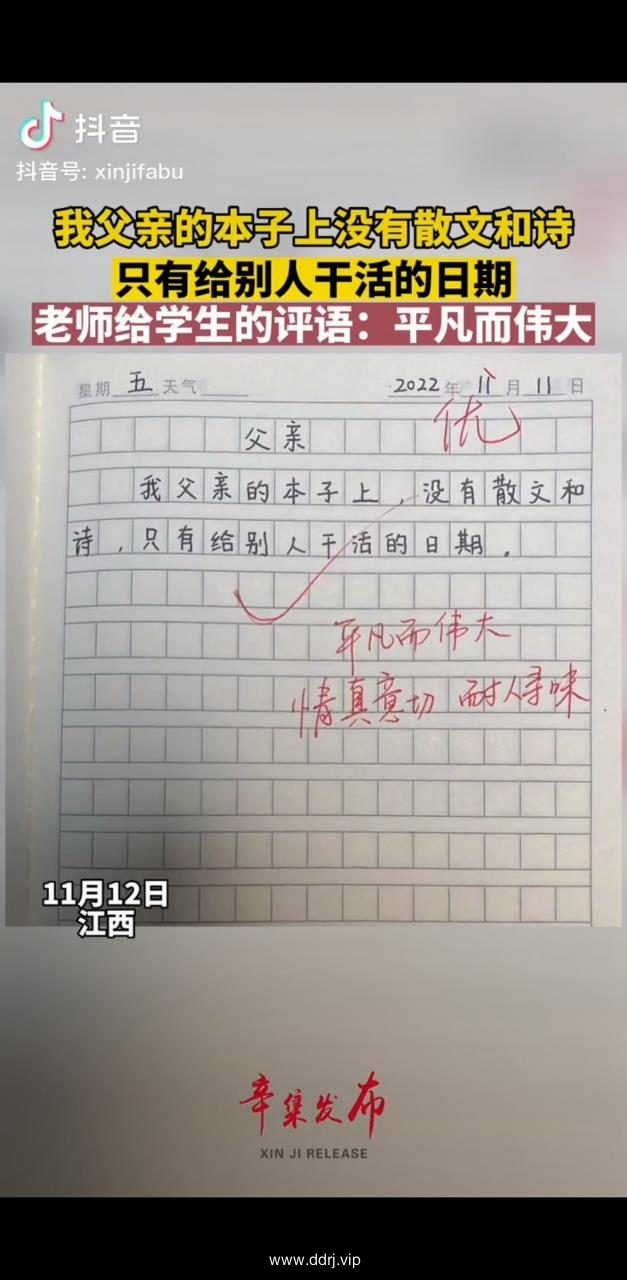 抖音
抖音号: xinjifabu
我父亲的本子上没有散文和诗
只有给别人干活的日期
老师给学生的评语：平凡而伟大
星期 五 天气 2022 年 11 月 11 日
优
父亲
我父亲的本子上，没有散文和
诗，只有给别人干活的日期。
平凡而伟大
情真意切 耐人寻味
11月12日
江西
辛集发布
XIN JI RELEASE
www.ddrj.vip